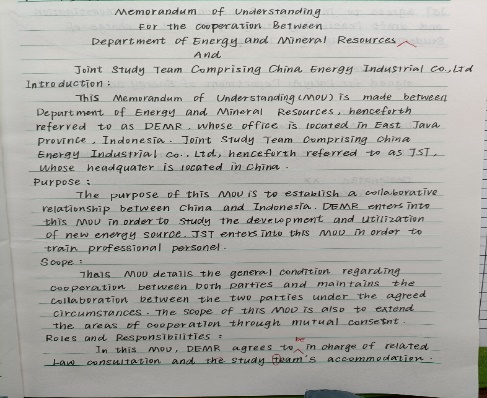 Memorandum of Understanding
For the cooperation Between
Department of Energy and Mineral Resources
And
Joint Study Team Comprising China Energy Industrial Co., Ltd
Introduction :
This Memorandum of Understanding (MOU) is made between
Department of Energy and Mineral Resources, henceforth
referred to as DEMR, whose office is located in East Java
Province, Indonesia. Joint Study Team Comprising China
Energy Industrial Co., Ltd, henceforth referred to as JST,
whose headquater is located in China.
Purpose :
The purpose of this MOU is to establish a collaborative
relationship between China and Indonesia. DEMR enters into
this MOU in order to study the development and utilization
of new energy source. JST enters into this MOU in order to
train professional personel.
Scope :
Thais MOU details the general condition regarding
cooperation between both parties and maintains the
collaboration between the two parties under the agreed
circumstances. The scope of this MOU is also to extend
the areas of cooperation through mutual consent.
Roles and Responsibilities :
In this MOU, DEMR agrees to be in charge of related
Law consultation and the study team's accommodation.